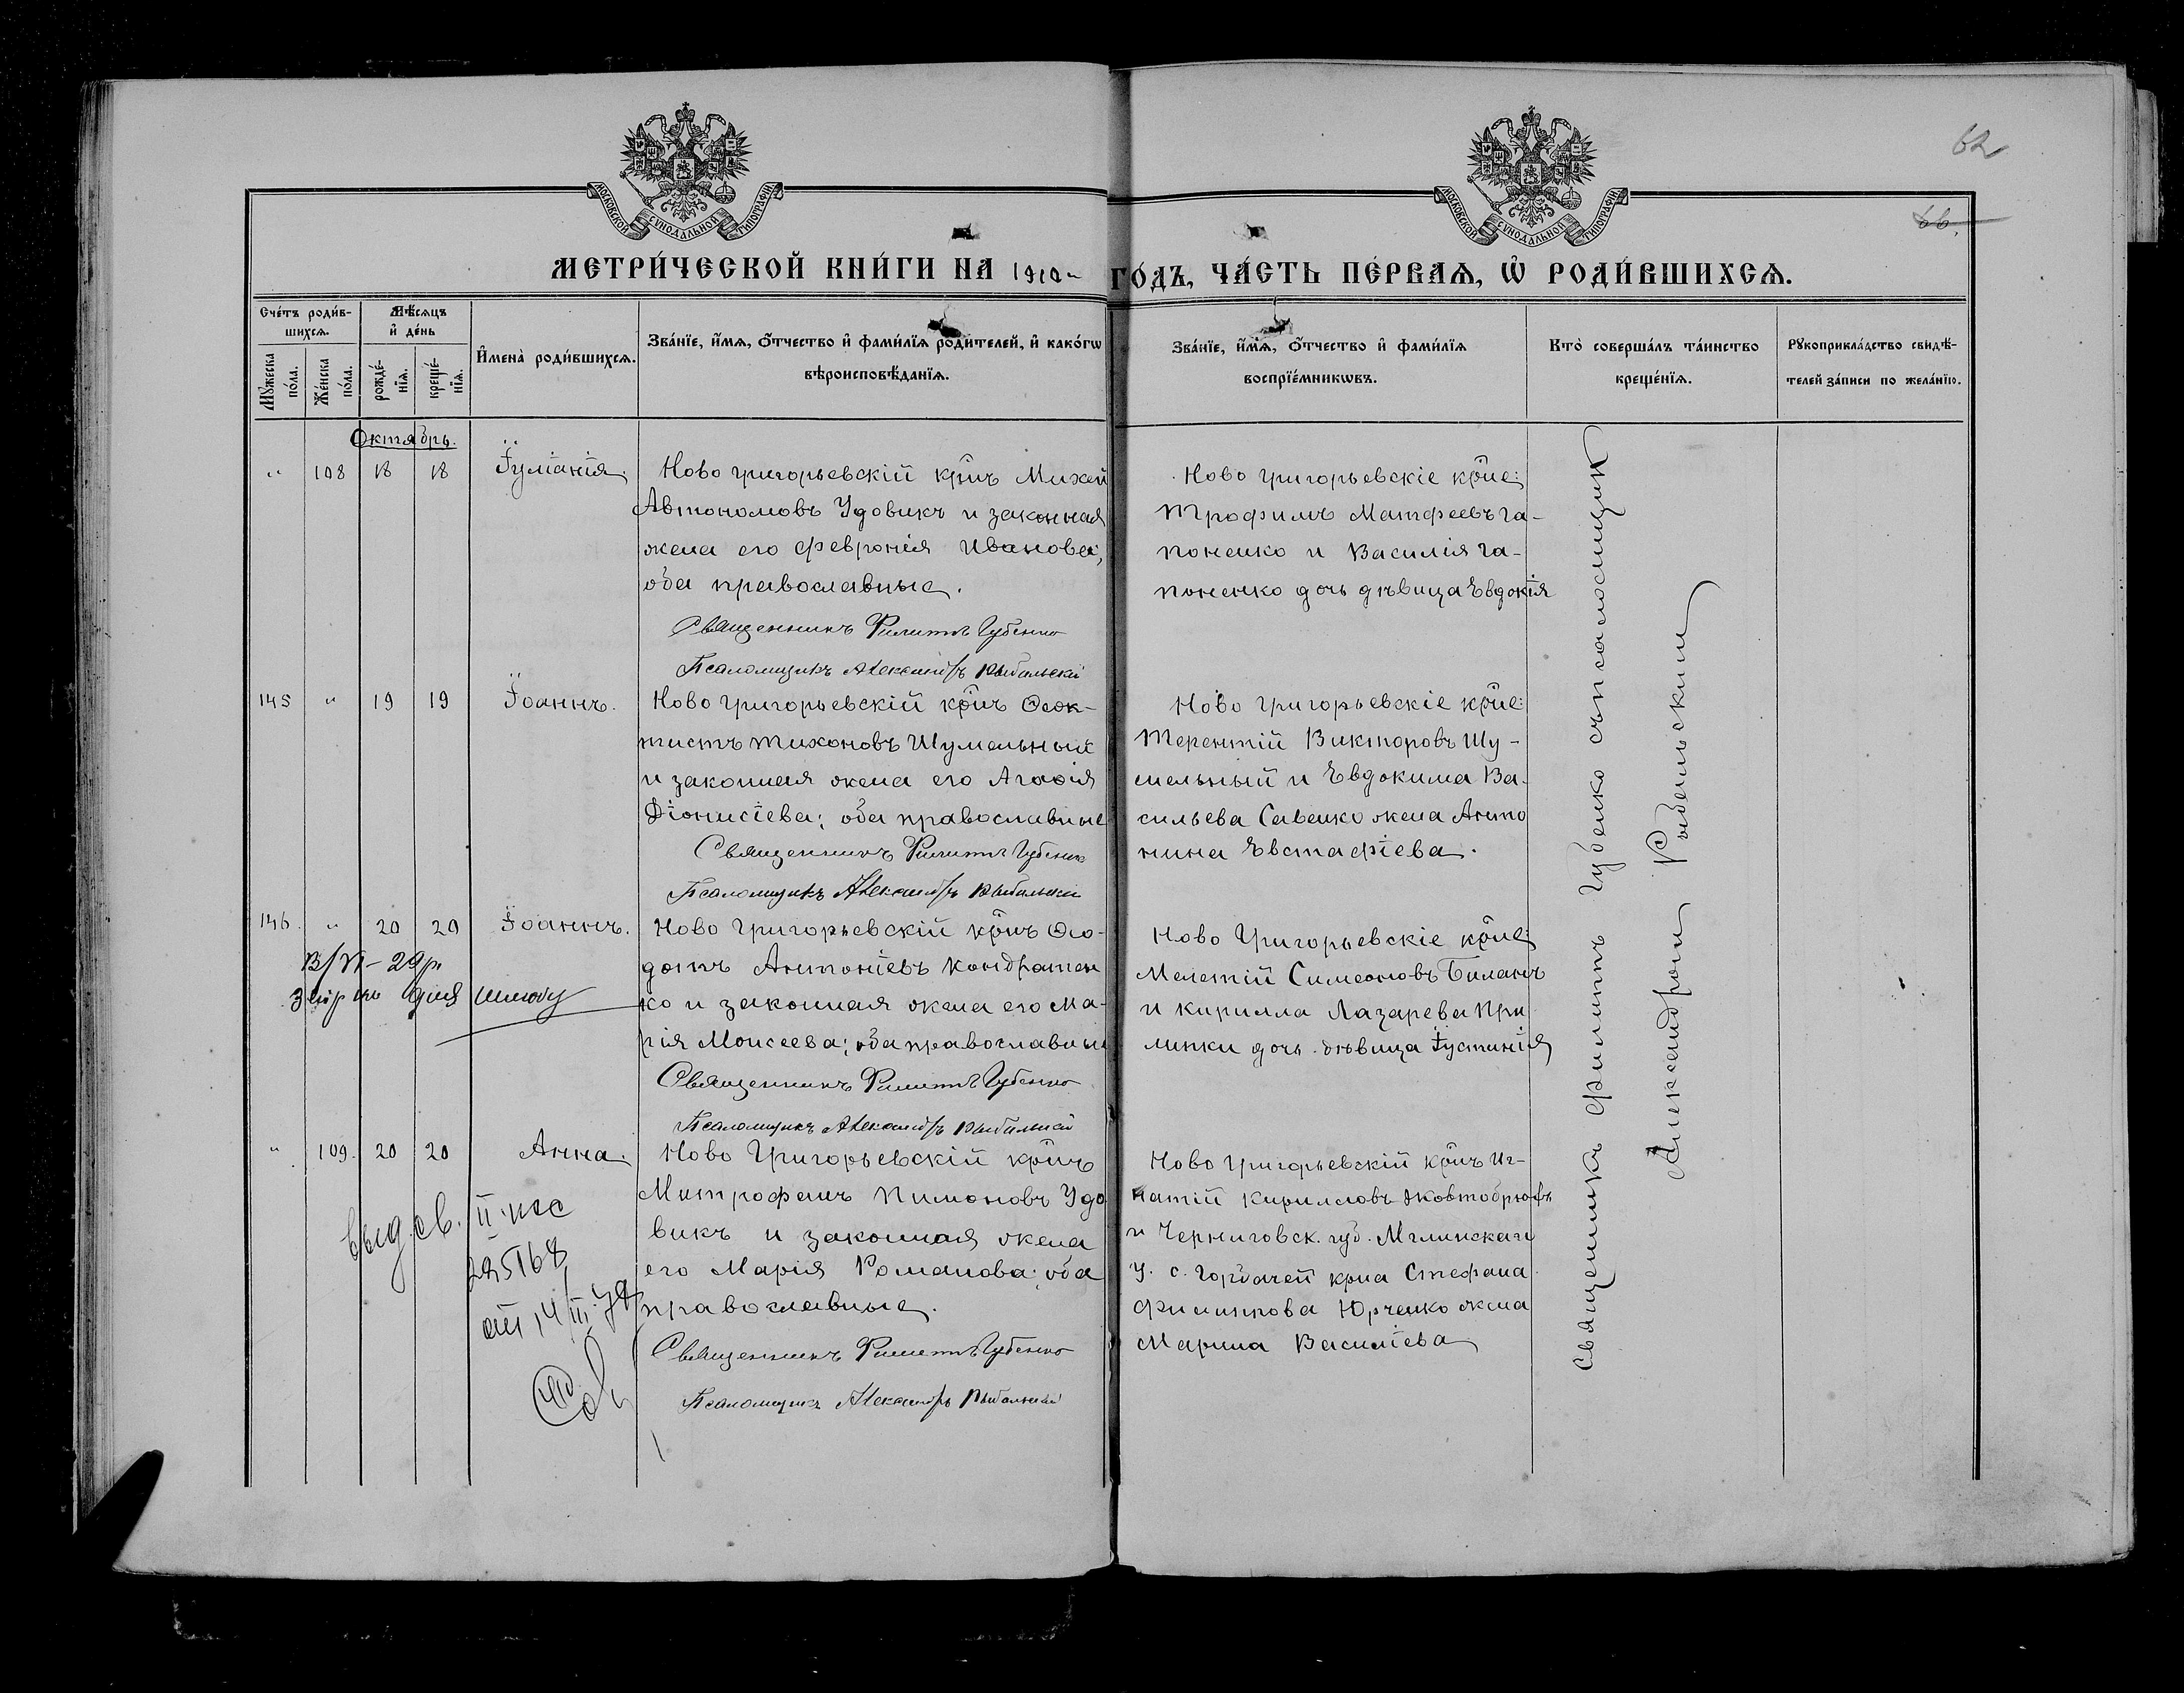 62
66.
МОСКОВСКОЙ СУНОДАЛЬНОЙ ТИПОГРАФІИ
МОСКОВСКОЙ СУНОДАЛЬНОЙ ТИПОГРАФІИ
МЕТРИ́ЧЕСКОЙ КНИ́ГИ НА 1910 ГО́ДЪ, ЧА́СТЬ ПЕ́РВАѦ, Ѡ҆ РОДИ́ВШИХСѦ.
Сче́тъ роди́в-
шихсѧ.
Мꙋ́жеска по́ла.
Же́нска по́ла.
Мѣ́сѧцъ
и҆ де́нь
рожде́-
нїѧ.
креще́-
нїѧ.
И҆мена̀ роди́вшихсѧ.
Зва́нїе, и҆́мѧ, о҆́тчество и҆ фами́лїѧ роди́телей, и҆ како́гѡ
вѣроисповѣ́данїѧ.
Зва́нїе, и҆́мѧ, о҆́тчество и҆ фами́лїѧ
воспрїе́мникѡвъ.
Кто̀ соверша́лъ та́инство
креще́нїѧ.
Рꙋкоприкла́дство свидѣ́-
телей за́писи по жела́нїю.
Октябрь.
" 108 18 18 Іуліанія.
Ново Григорьевскій крнъ Михей
Автономовъ Удовикъ и законная
жена его Феврониія Иванова,
оба православные.
Священникъ Филиппъ Губенко
Псаломщикъ Александръ Рыбальскій
Ново Григорьевскіе крне:
Трофимъ Матфеевъ Га-
поненко и Василія Га-
поненко дочь дѣвица Евдокія
145 " 19 19 Іоаннъ.
Ново Григорьевскій крнъ Ѳеок-
тистъ Тихоновъ Шумельный
и законная жена его Агафія
Діонисіева; оба православные
Священникъ Филиппъ Губенко
Псаломщикъ Александръ Рыбальскій
Ново Григорьевскіе крне:
Терентій Викторовъ Шу-
мельный и Евдокима Ва-
сильева Савенко жена Анто
нина Евстафіева.
146. " 20 20 Іоаннъ.
В/VI-29р.
для шлюбу
Ново Григорьевскій крнъ Ѳео-
дотъ Антоніевъ Кондратен
ко и законная жена его Ма-
рія Моисеева; оба православные
Священникъ Филиппъ Губенко
Псаломщикъ Александръ Рыбальскій
Ново Григорьевскіе крне:
Мелетій Симеоновъ Биланъ
и Кирилла Лазарева При
липки дочь дѣвица Іустинія
" 109. 20 20 Анна.
Выд. св. II
225168
от 14/III
Ново Григорьевскій крнъ
Митрофанъ Пимоновъ Удо
викъ и законная жена
его Марія Романова; оба
православные.
Священникъ Филиппъ Губенко
Псаломщикъ Александръ Рыбальскій
Ново Григорьевскій крнъ Иг-
натій Кирилловъ Жовтобрюхъ
и Черниговск. губ. Мглинскаго
у. с. Горбачей крна Стефана
Филиппова Юрченко жена
Марина Василіева
Священникъ Филиппъ Губенко съ псаломщик
Александромъ Рыбальскимъ